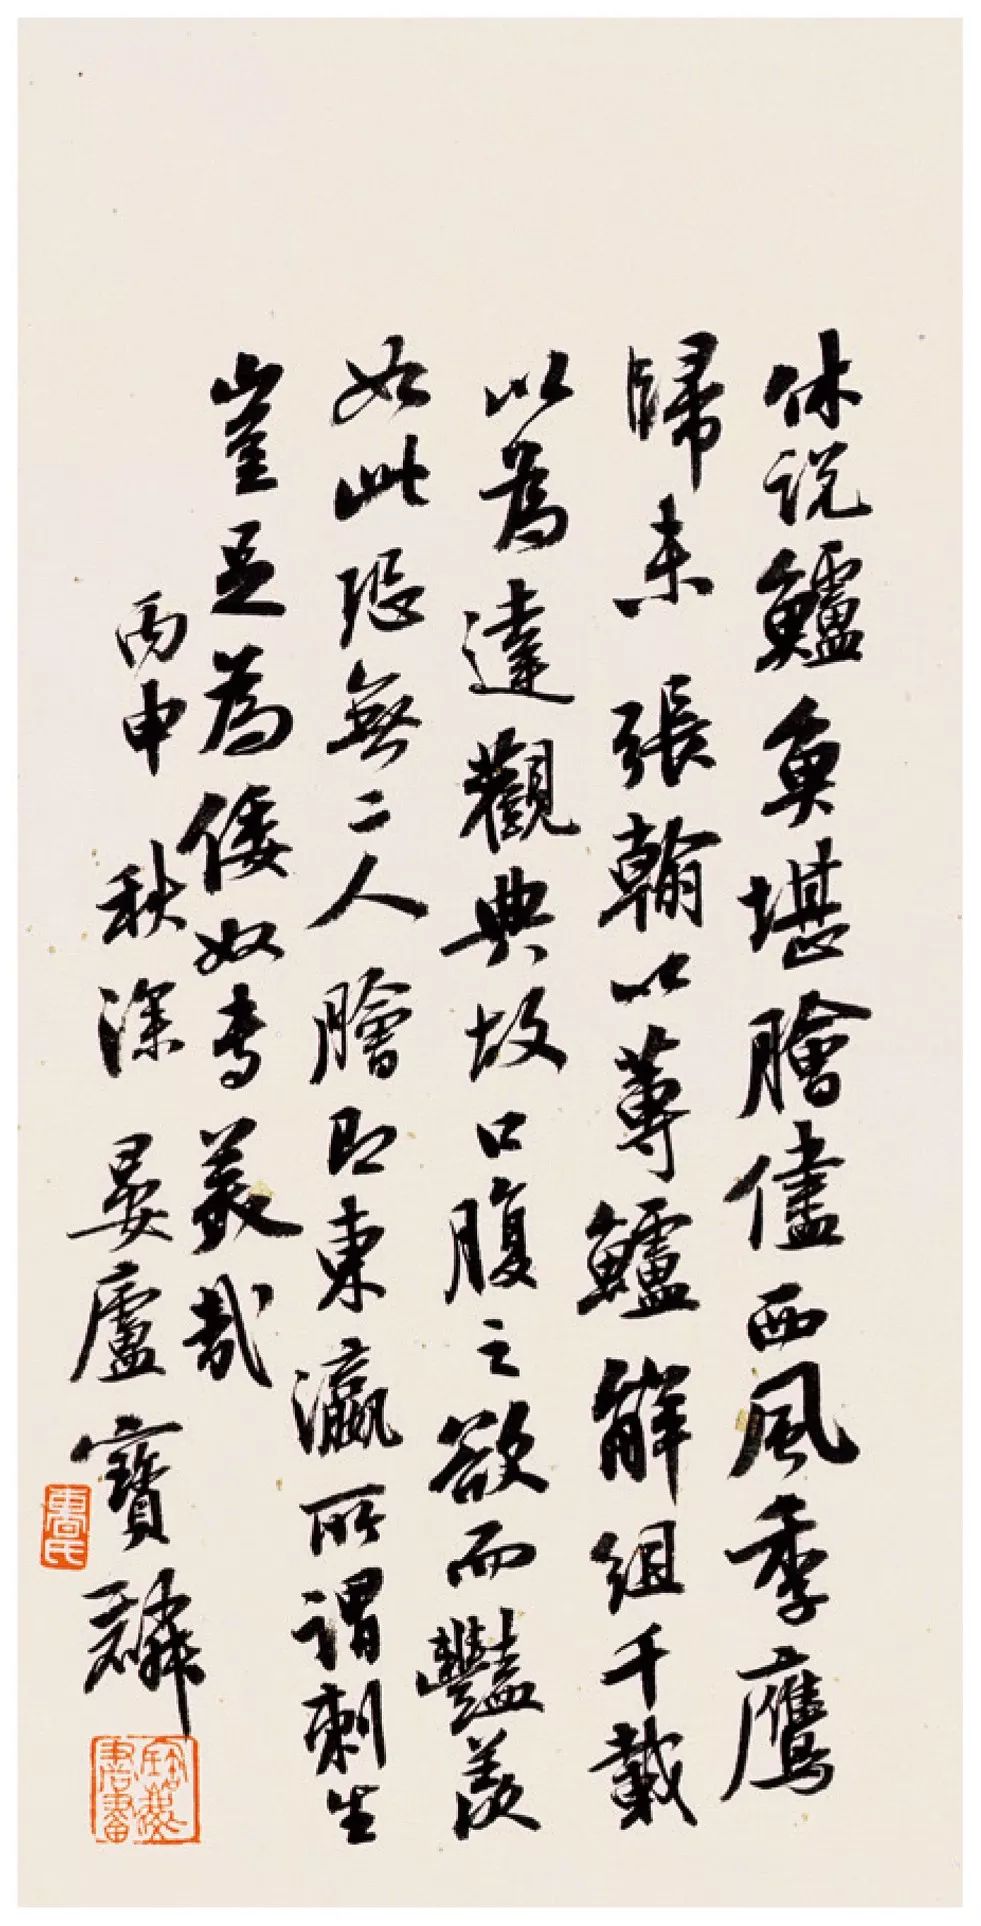 休说鱸魚堪膾儘西風季鹰
歸未張翰以蓴鱸解组千載
以為達觀典故口腹之欲而豔羨
如此恐無二人膾即東瀛所謂刺生
豈足為倭奴专美哉
丙申秋深晏廬寶麟